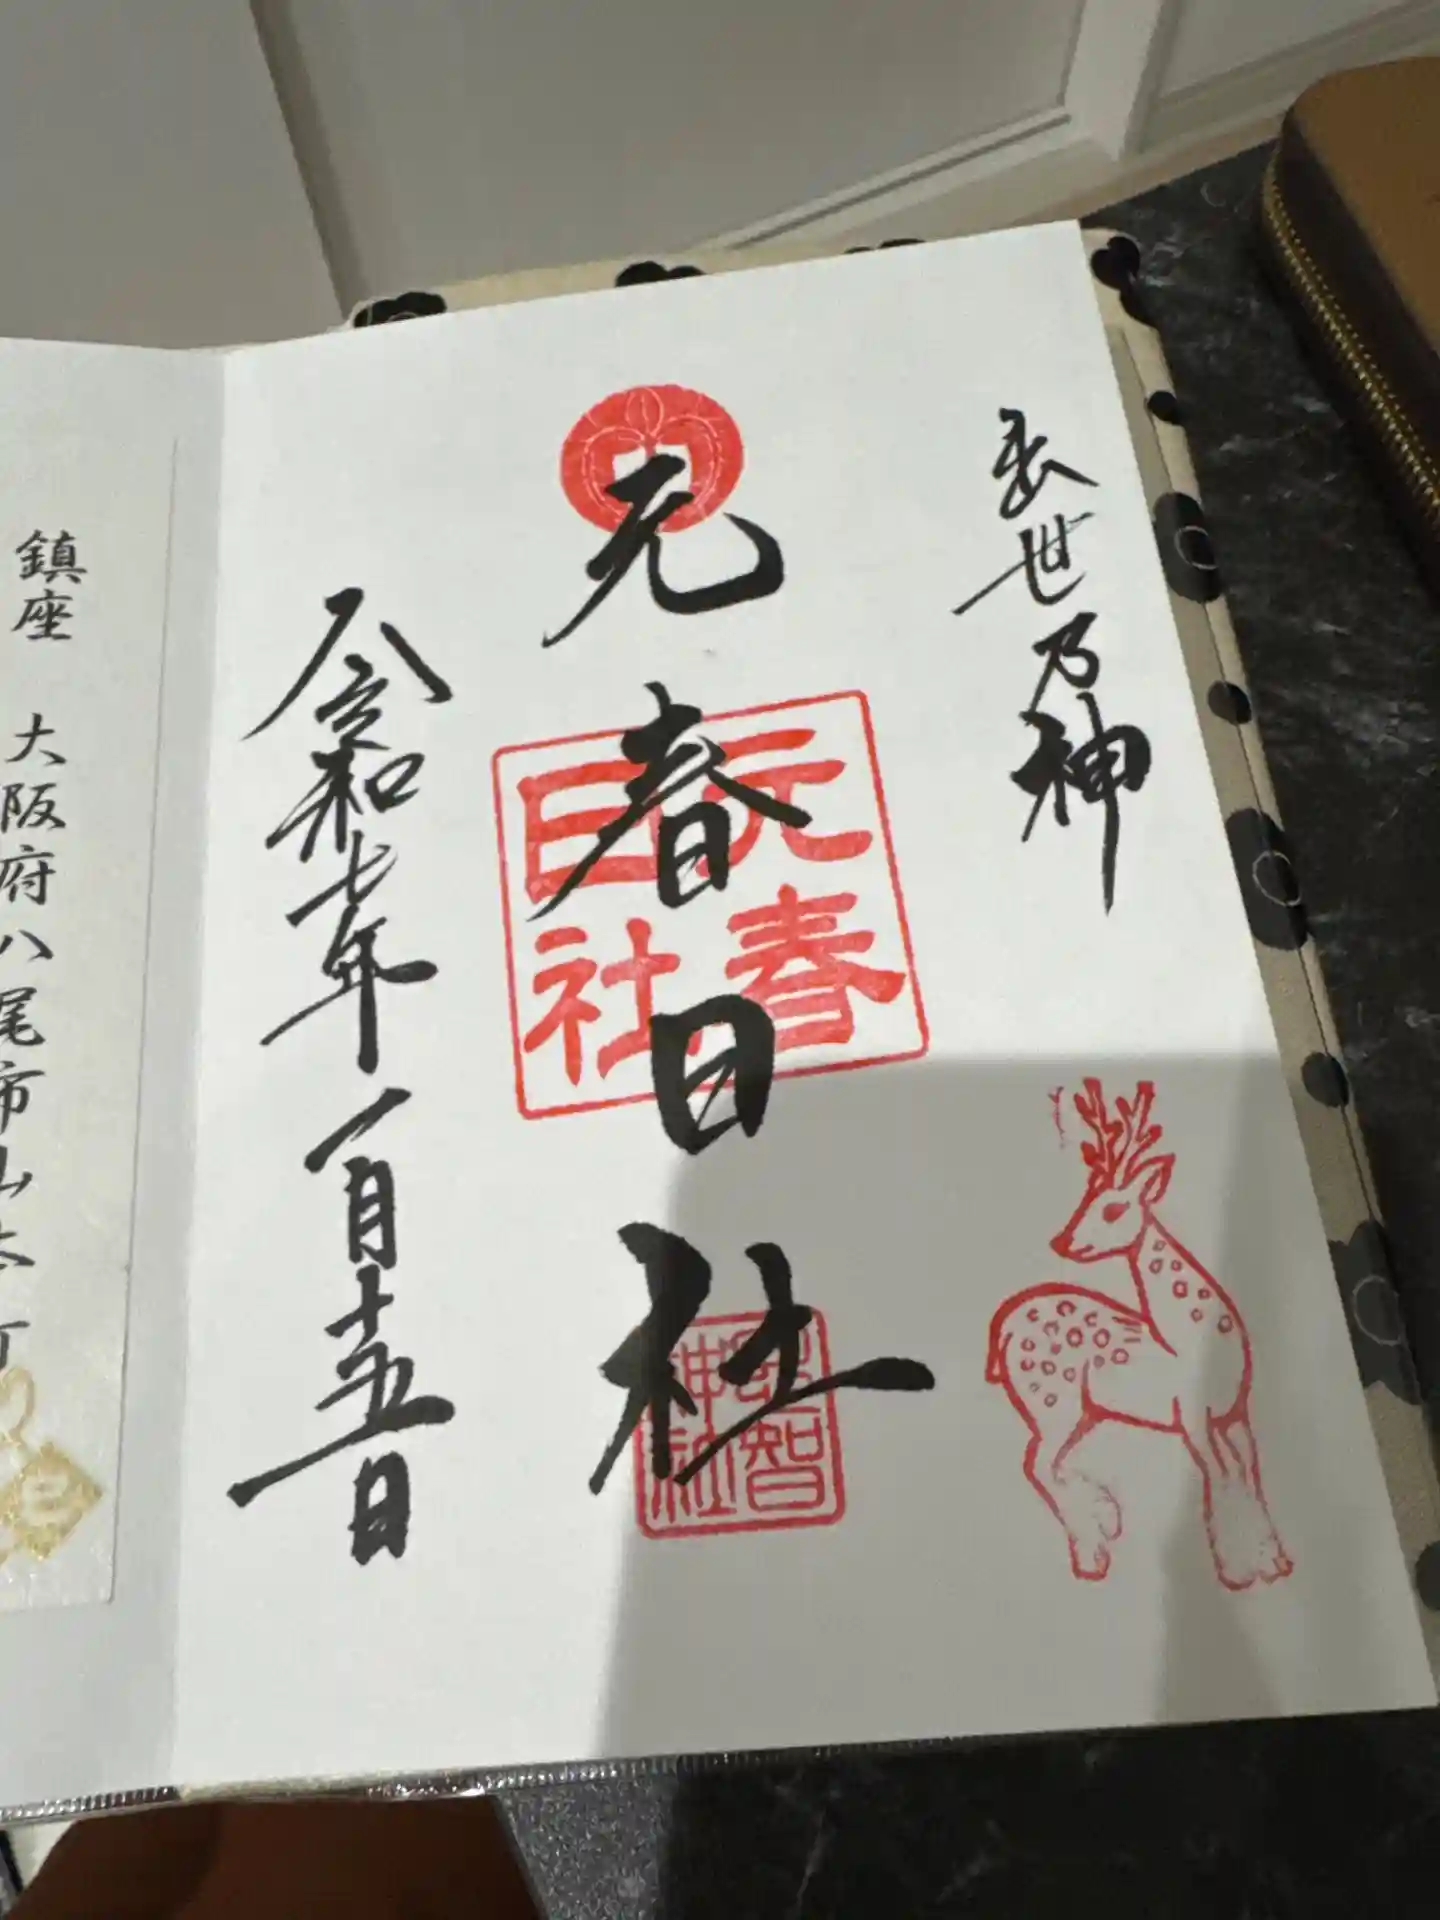 出世乃神
元春日社
元春日社
恩智神社
令和七年一月十五日
鎮座 大阪府八尾市山本町